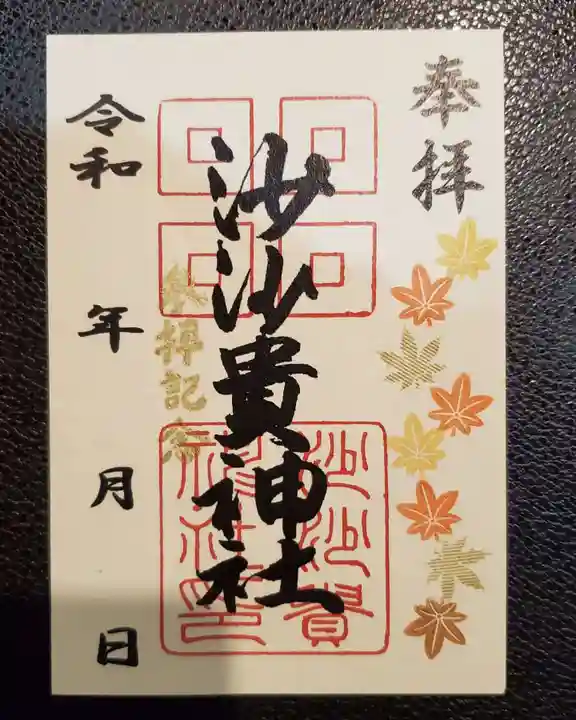 奉拝
沙沙貴神社
参拝記念
沙沙貴
神社印
令和 年 月 日